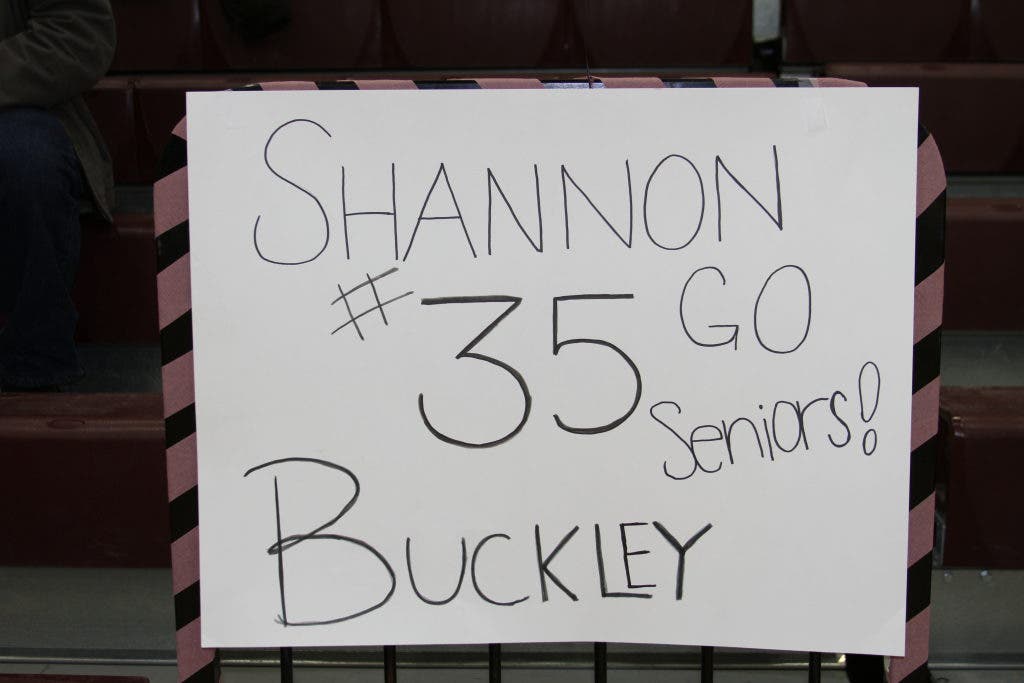 SHANNON
#35 GO
Seniors!
BUCKLEY